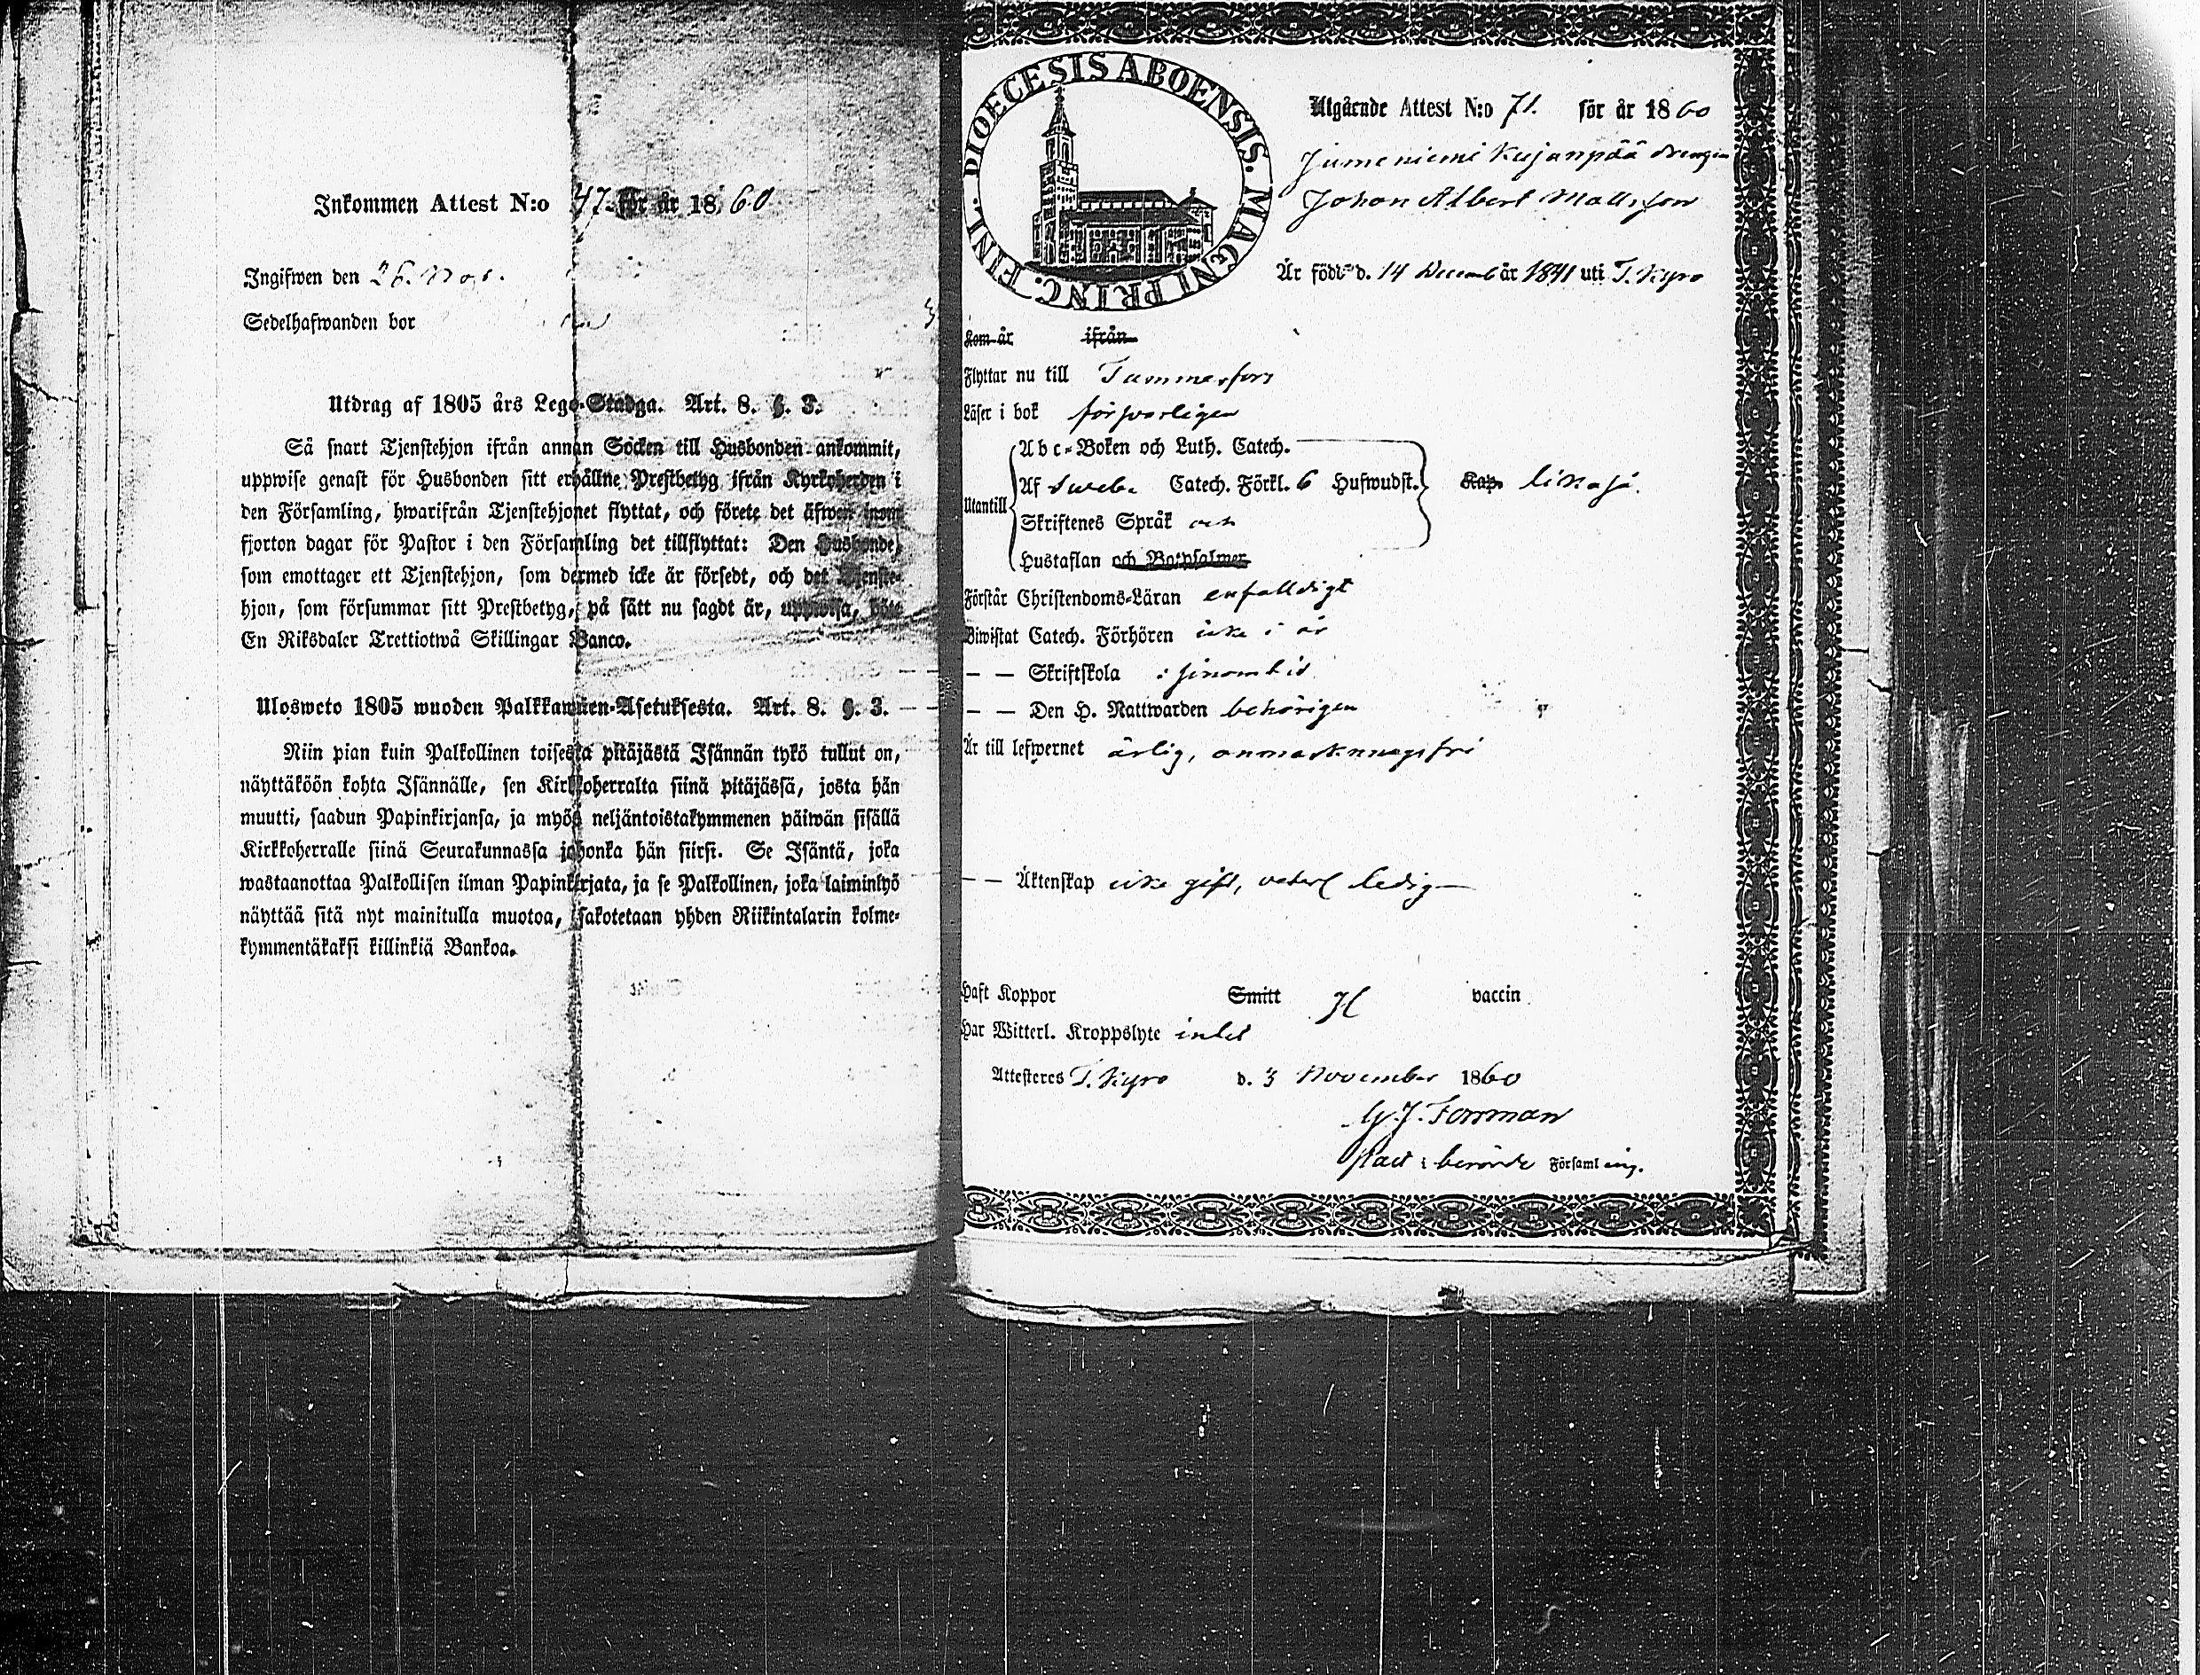 Inkommen Attest N:o 47. för år 1860
Ingifwen den 26. Nov.
Sedelhafwanden bor
Utdrag af 1805 års Lego-Stadga. Art. 8. §. 3.
Så snart Tjenstehjon ifrån annan Socken till Husbonden ankommit,
uppwise genast för Husbonden sitt erhållne Prestbetyg ifrån Kyrkoherden i
den Församling, hwarifrån Tjenstehjonet flyttat, och förete det äfwen inom
fjorton dagar för Pastor i den Församling det tillflyttat: Den Husbonde,
som emottager ett Tjenstehjon, som dermed icke är försedt, och det Tjenste-
hjon, som försummar sitt Prestbetyg, på sätt nu sagdt är, uppwisa, böte
En Riksdaler Trettiotwå Skillingar Banco.
Ulosweto 1805 wuoden Palkkawäen-Asetuksesta. Art. 8. §. 3.
Niin pian kuin Palkollinen toisesta pitäjästä Isännän tykö tullut on,
näyttäköön kohta Isännälle, sen Kirkkoherralta siinä pitäjässä, josta hän
muutti, saadun Papinkirjansa, ja myös neljäntoistakymmenen päiwän sisällä
Kirkkoherralle siinä Seurakunnassa johonka hän siirsi. Se Isäntä, joka
wastaanottaa Palkollisen ilman Papinkirjata, ja se Palkollinen, joka laiminlyö
näyttää sitä nyt mainitulla muotoa, sakotetaan yhden Riikintalarin kolme-
kymmentäkaksi killinkiä Bankoa.
DIOECESIS ABOENSIS. MAGNI PRINC. FINL.
Utgående Attest N:o 71. för år 1860
Jumeniemi Kujanpää drengen
Johan Albert Mattsson
Är född d. 14 Decemb år 1841 uti T. Kyro
Kom år ifrån
Flyttar nu till Tammerfors
Läser i bok försvarligen
Utantill
Abc-Boken och Luth. Catech.
Af Svebe. Catech. Förkl. 6 Hufwudst. Kap. likaså.
Skriftenes Språk och
Hustaflan och Botpsalmer
Förstår Christendoms-Läran enfaldigt
Biwistat Catech. Förhören icke i år
— — Skriftskola i sinom tid
— — Den H. Nattwarden behörigen
Är till lefwernet ärlig, anmärkningsfri
— — Äktenskap icke gift, veterl. ledig —
Haft Koppor Smitt H vaccin
Har Witterl. Kroppslyte intet
Attesteres T. Kyro d. 3 November 1860
G. J. Forsman
i berörde Församling.